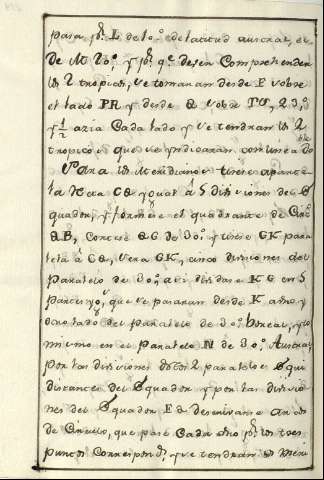 para pr. L de 10º de latitud austral, el
de M 20º, y pr. qe. deven Comprehender
los 2 tropicos, se tomaran desde E sobre
el lado PR y desde Q sobre TV, 23º
y ½ azia Cada lado y se tendran los 2
tropicos que se yndicaran con linea do ble
Para los Meridianos tirese aparte
la recta CQ ygual à 5 divisiones del E
quador, y formese el quadrante de Circ
QB, Cortese QG de 30º y tirese GK para
lela à CQ, sera GK, cinco divisiones del
Paralelo de 30º, asi dividase KG en 5
partes que se pasaran desde K a uno y
otro lado del paralelo de 30º boreal, y lo
mismo en el Paralelo N de 30º Austral,
por las divisiones de los 2 paralelos Equi
distantes del Equador y por las divisio
nes del Equador E se descriviran Arcos
de Circulo, que pase Cada uno pr. los tres
puntos Correspondtes. y se tendran los Meri